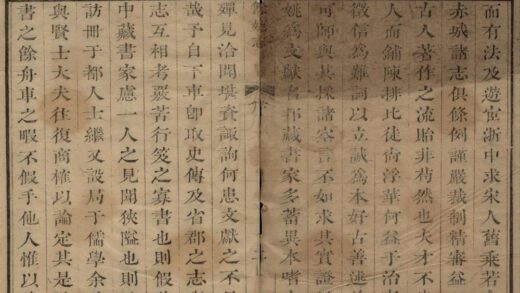 而有法及遊宦浙中求宋人舊乘若
赤城諸志俱條例謹嚴裁制精審益
古人著作之流貽非苟然也大才不
人而鋪陳排比徒尚浮華何益于治
徵信爲難詞以立誠爲本好古善述
可師與其採諸家言不如求其實證
姚爲文獻名邦藏書家多著異本嗜
殫見洽聞堪資諏詢何患文獻之不
哉予自下車卽取史傳及省郡之志
志互相考覈苦行笈之寡書也則假
中藏書家慮一人之見聞狹隘也則
訪冊于都人士繼又設局于儒學余
與賢士大夫往復商榷以論定其是
書之餘舟車之暇不假手他人惟以